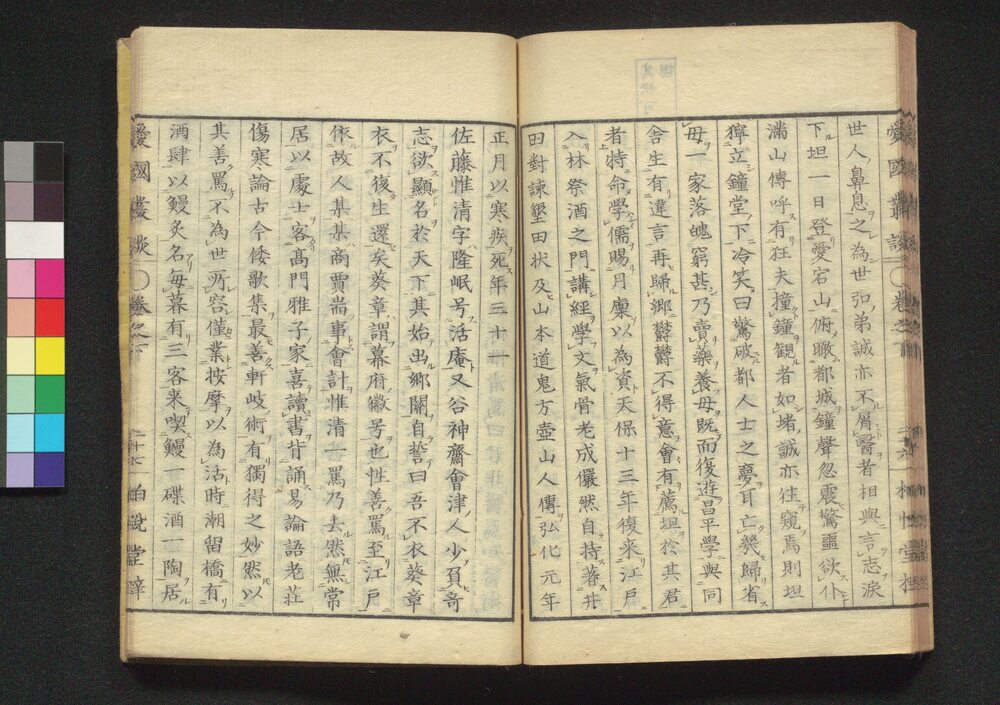 世人鼻息之為世弘弟誠亦不屑醫者相與言志淚
下坦一日登愛宕山俯瞰都城鐘聲忽震驚噩欲仆
滿山傳呼有狂夫撞鐘觀者如堵誠亦往窺焉則坦
獰立鐘堂下冷笑曰驚破都人士之夢耳亡幾歸省
母一家落魄窮甚乃賣藥養母既而復遊昌平學與同
舍生有違言再歸鄉欝欝不得意會有薦坦於其君
者特命學儒賜月廩以為資天保十三年復来江戶
入林祭酒之門講經學文氣骨老成儼然自持著井
田對諫墾田状及山本道鬼方壺山人傳弘化元年
正月以寒疾死年三十一
佐藤惟清字隆岷号活庵又谷神齋會津人少負奇
志欲顯名於天下其始出鄉關自誓曰吾不衣葵章
衣不復生還矣葵章謂幕府徽号也性善罵至江戶
依故人某某商賈耑事會計惟清一罵乃去然無常
居以處士客高門雅子家喜讀書背誦易論語老莊
傷寒論古今倭歌集最善軒岐術有獨得之妙然以
其善罵不為世所容僅業按摩以為活時潮留橋有
酒肆以鰻炙名每暮有三客来喫鰻一碟酒一陶居
愛國叢談 卷之下